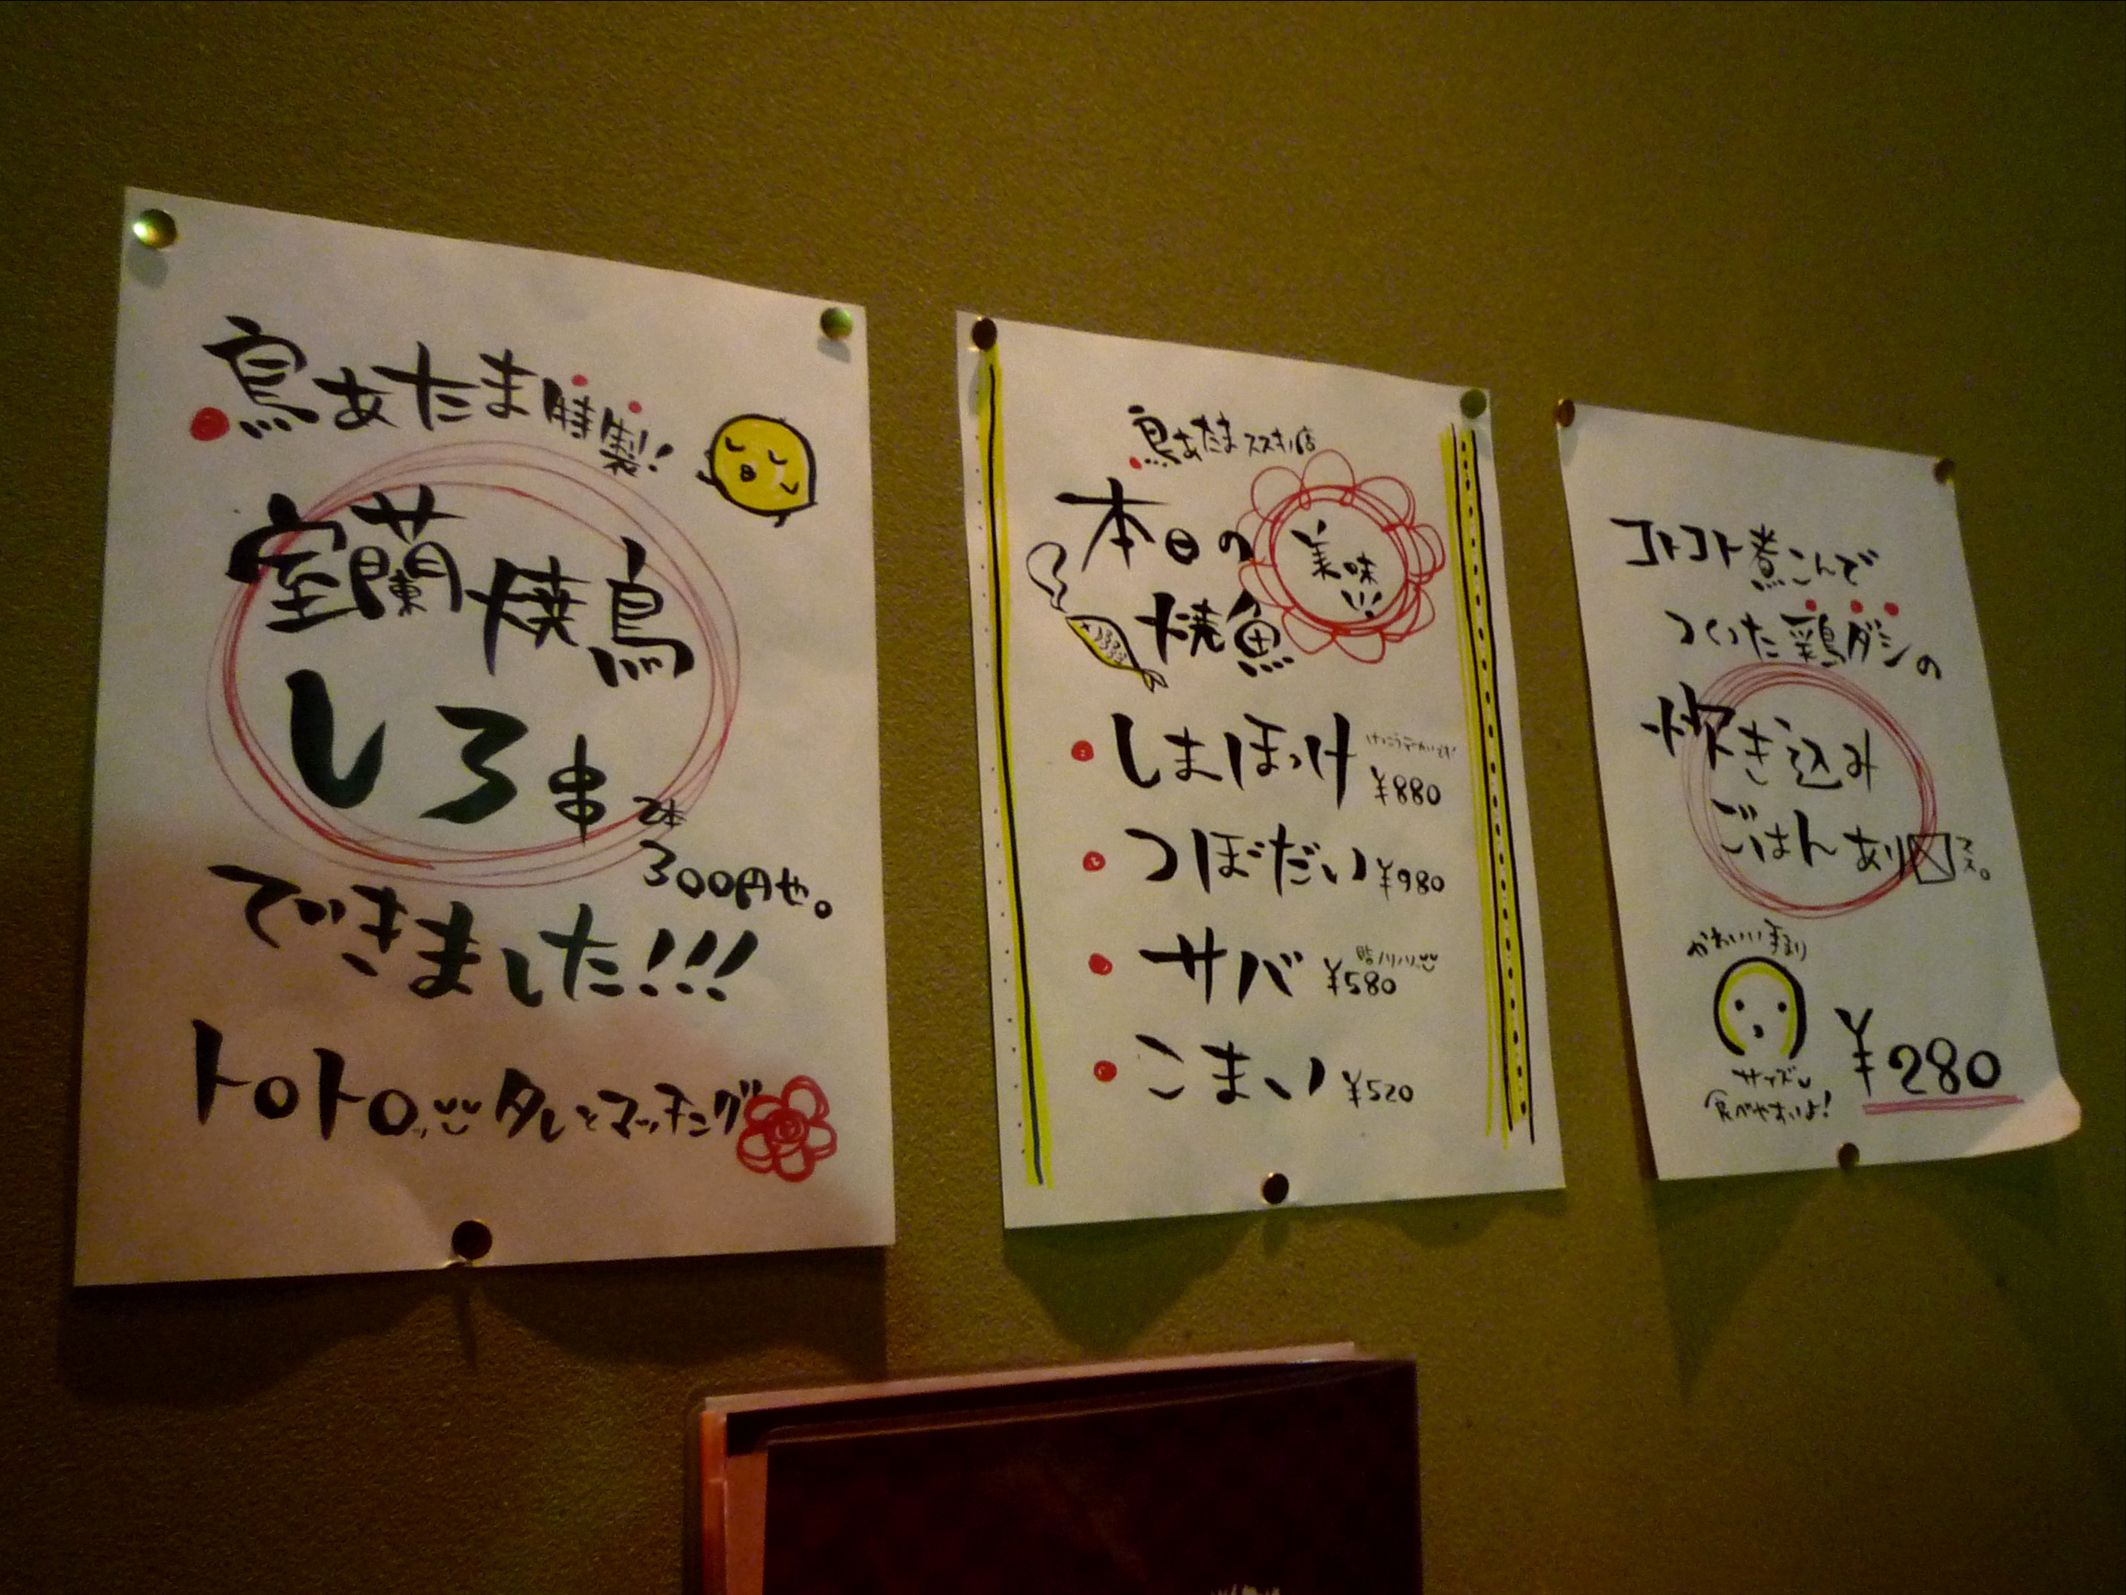 鳥あたま特製!
室蘭焼鳥
しろ串
2本
300円也。
できました!!!
トロトロ タレとマッチング
鳥あたまススキノ店
本日の
美味
焼魚
しまほっけ
¥880
つぼだい ¥980
サバ ¥580
こまい ¥520
コトコト煮こんで
つくった鶏ダシの
炊き込み
ごはんあり〼マス。
かわいい
サイズ
食べやすいよ!
¥280